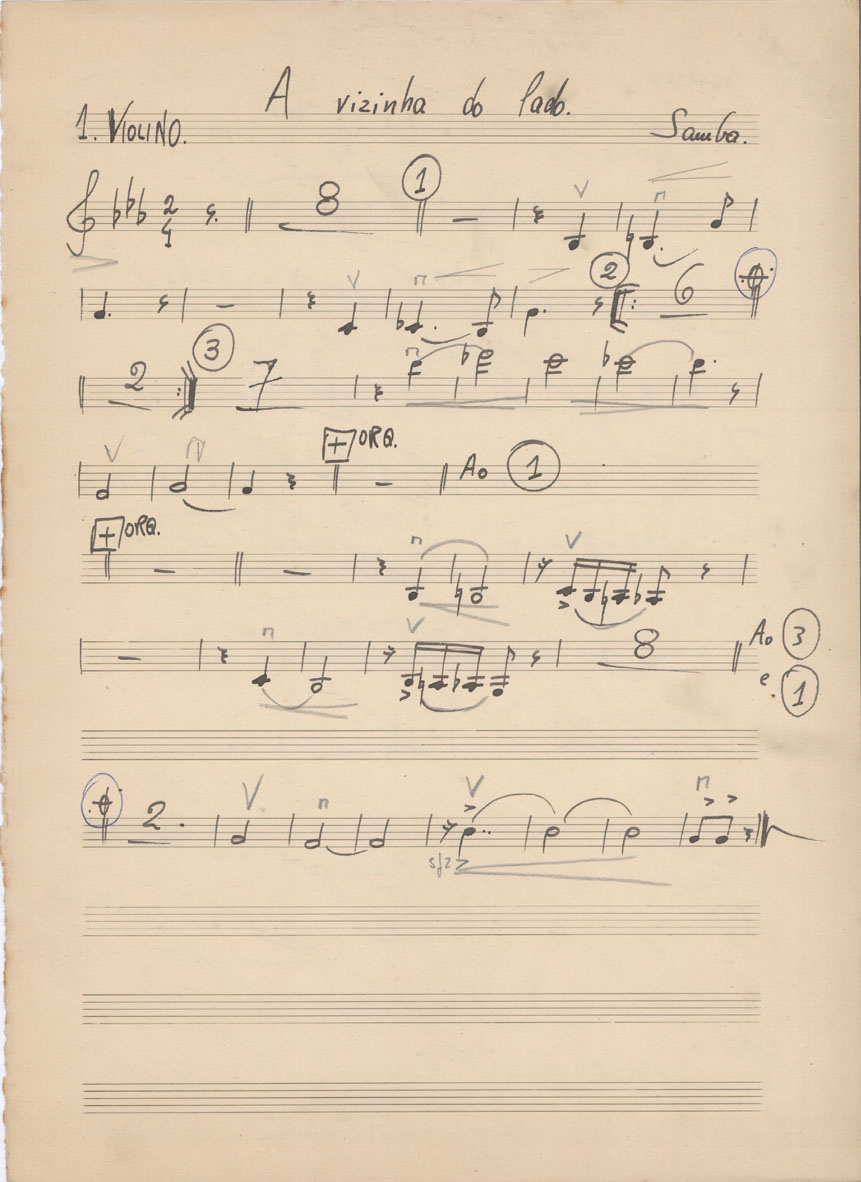 A vizinha do lado.
1. VIOLINO. Samba.
2
4
8 1
2 6
2 3 7
+ ORQ. Ao 1
+ ORQ.
8 Ao 3
e. 1
2.
sfz